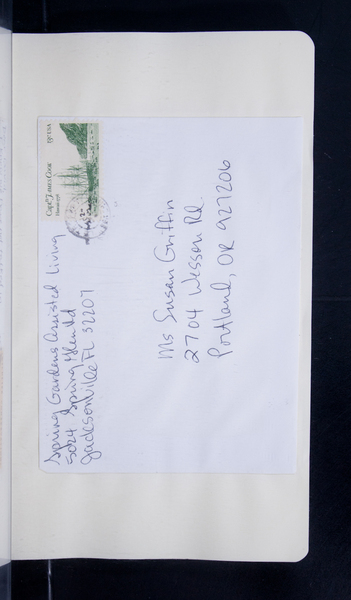 Spring Gardens Assisted Living
5024 Spring Glen Rd
Jacksonville FL 32207
Capt. James Cook
Hawaii 1778
13c USA
Ms Susan Griffin
2704 Wesson Rd.
Portland, OR 927206